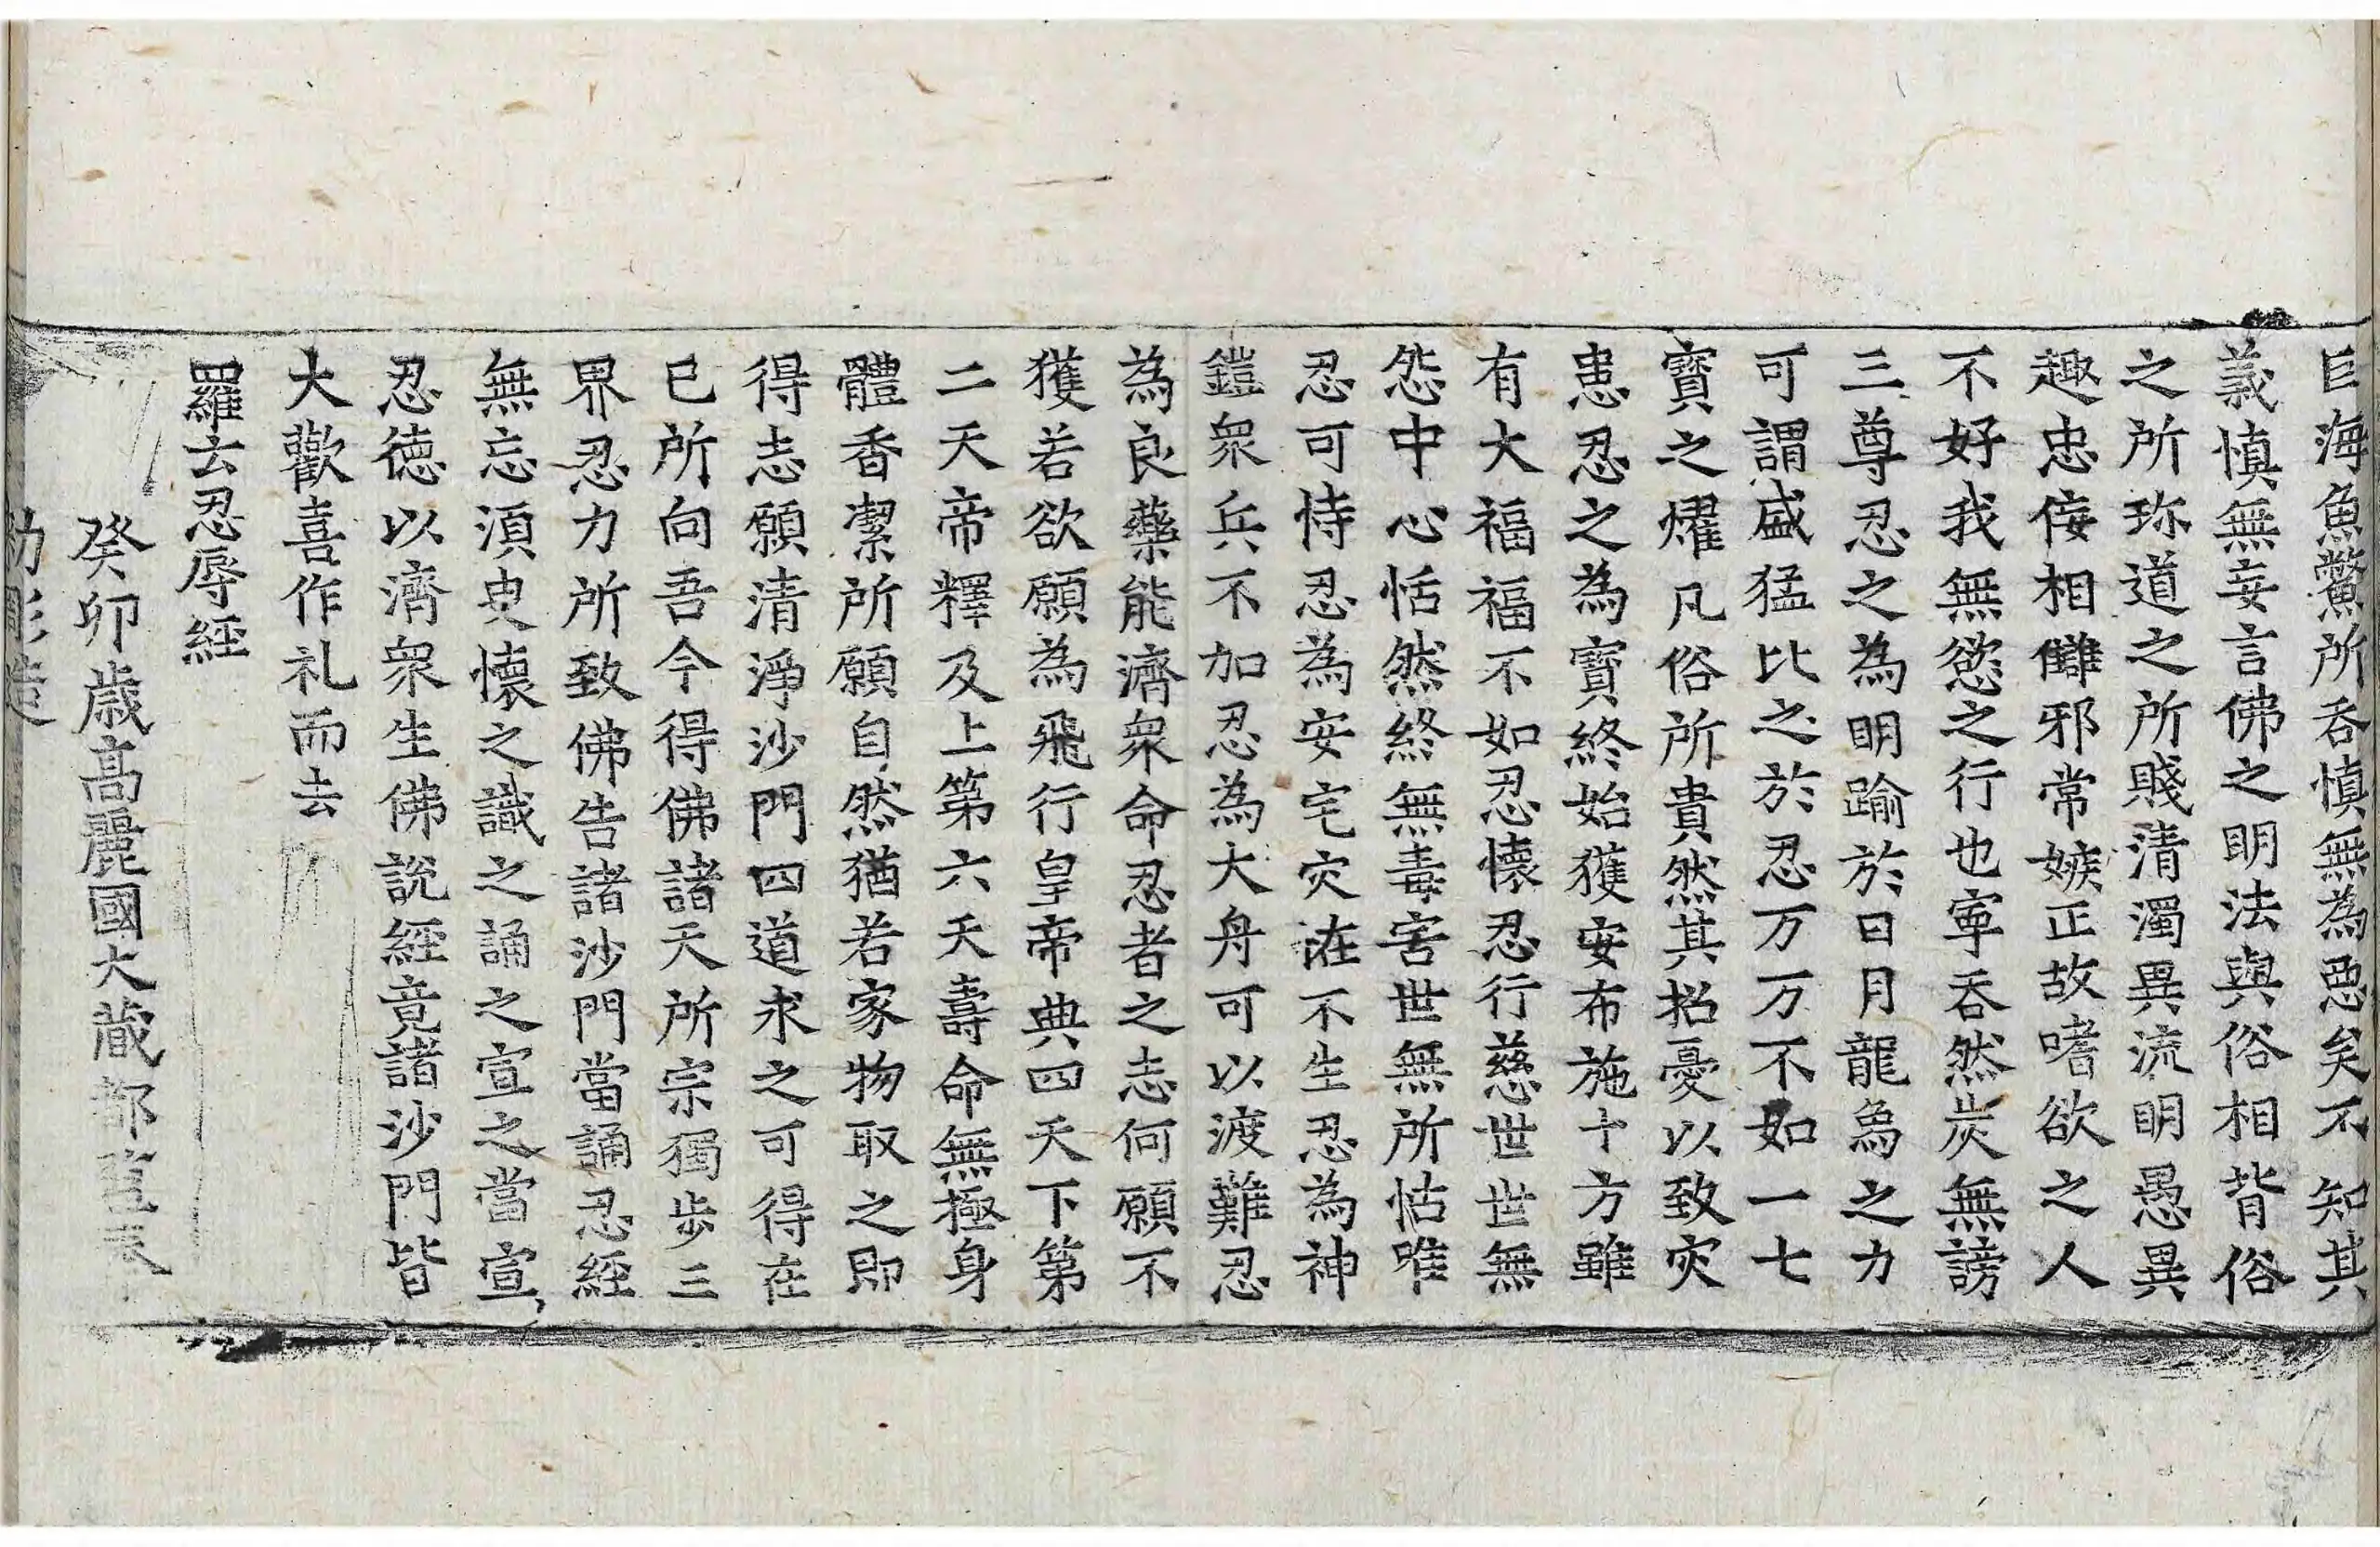 巨海魚鱉所吞慎無為惡矣不知其
義慎無妄言佛之明法與俗相背俗
之所珎道之所賤清濁異流明愚異
趣忠侫相讎邪常嫉正故嗜欲之人
不好我無慾之行也寧吞然炭無謗
三尊忍之為明踰於日月龍為之力
可謂盛猛比之於忍万万不如一七
寶之燿凡俗所貴然其招憂以致灾
患忍之為寶終始獲安布施十方雖
有大福福不如忍懷忍行慈世世無
怨中心恬然終無毒害世無所怙唯
忍可恃忍為安宅灾𢘆不生忍為神
鎧衆兵不加忍為大舟可以渡難忍
為良藥能濟衆命忍者之志何願不
獲若欲願為飛行皇帝典四天下第
二天帝釋及上第六天壽命無極身
體香潔所願自然猶若家物取之即
得志願清淨沙門四道求之可得在
已所向吾今得佛諸天所宗獨步三
界忍力所致佛告諸沙門當誦忍經
無忘須臾懷之識之誦之宣之當宣
忍德以濟衆生佛說經竟諸沙門皆
大歡喜作礼而去
羅云忍辱經
癸卯歲高麗國大藏都監奉
勑彫造